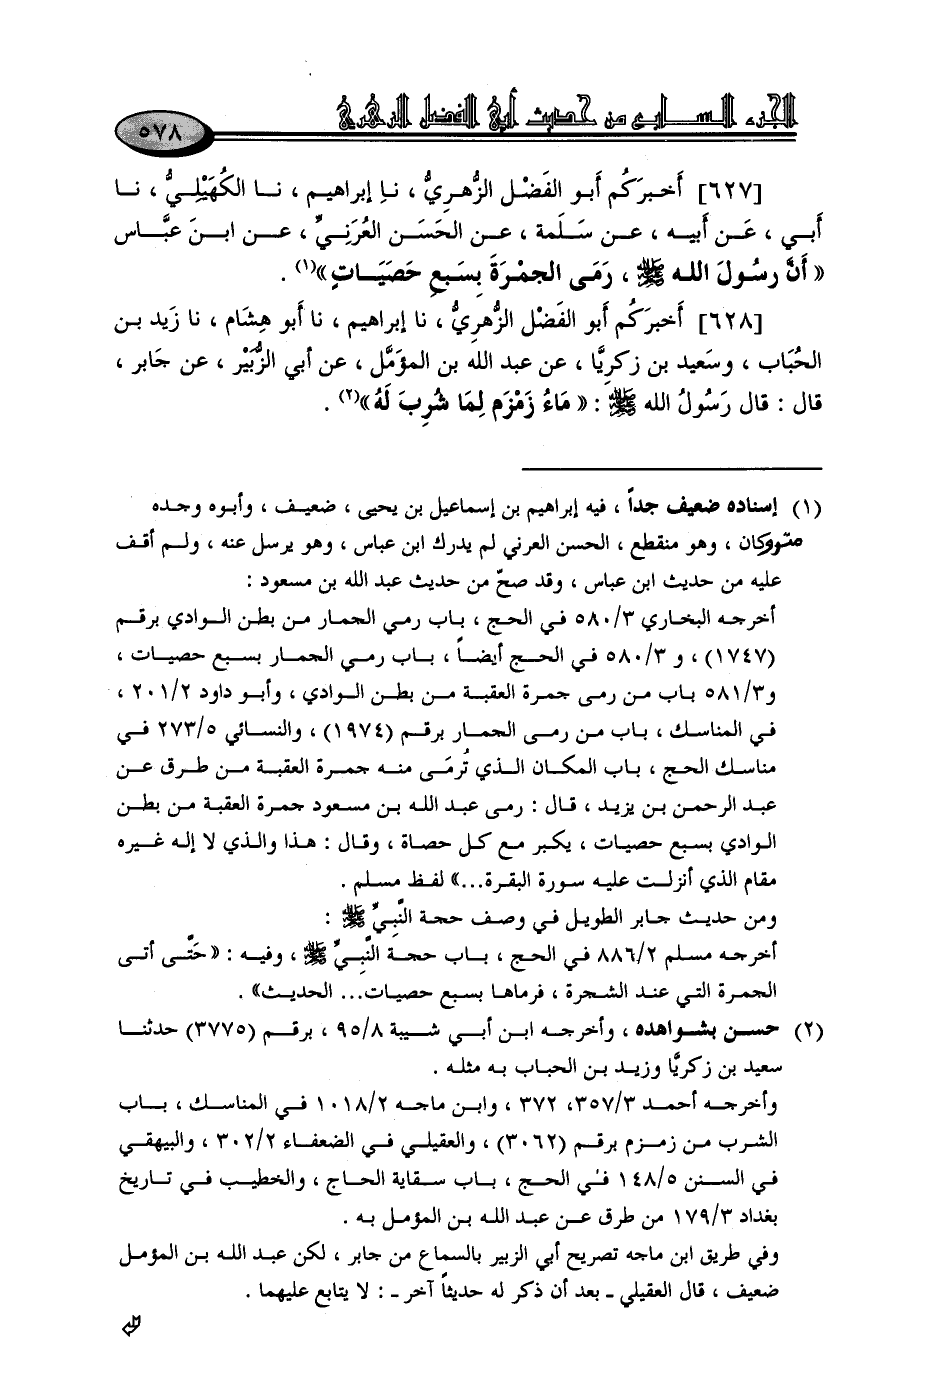 الجزء السابع من حديث أبي الفضل الزهري
٥٧٨
[٦٢٧] أَخبرَكُم أبو الفَضْل الزُّهرِيُّ ، نا إبراهيم ، نا الكُهَيْلِيُّ ، نا
أَبي ، عَن أَبيه ، عن سَلَمة ، عن الحَسَن العُرَنِيِّ ، عن ابنِ عبَّاس
« أَنَّ رسُولَ الله ﷺ ، رَمَى الجمْرَةَ بِسَبعِ حَصَيَاتٍ »(١) .
[٦٢٨] أَخبرَكُم أبو الفَضْل الزُّهرِيُّ ، نا إبراهيم ، نا أَبو هِشَام ، نا زَيد بن
الحُبَاب ، وسَعيد بن زكريَّا ، عن عبد الله بن المؤَمَّل ، عن أبي الزُّبَيْر ، عن جَابر ،
قال : قال رَسُولُ الله ﷺ : « مَاءُ زَمْزَم لِمَا شُرِبَ لَهُ »(٢) .
(١) إسناده ضعيف جداً ، فيه إبراهيم بن إسماعيل بن يحيى ، ضعيف ، وأبوه وجده
متروكان ، وهو منقطع ، الحسن العرني لم يدرك ابن عباس ، وهو يرسل عنه ، ولم أقف
عليه من حديث ابن عباس ، وقد صحّ من حديث عبد الله بن مسعود :
أخرجه البخاري ٥٨٠/٣ في الحج ، باب رمي الجمار من بطن الوادي برقم
(١٧٤٧) ، و ٥٨٠/٣ في الحج أيضاً ، باب رمي الجمار بسبع حصيات ،
و٥٨١/٣ باب من رمى جمرة العقبة من بطن الوادي ، وأبو داود ٢٠١/٢ ،
في المناسك ، باب من رمى الجمار برقم (١٩٧٤) ، والنسائي ٢٧٣/٥ في
مناسك الحج ، باب المكان الذي تُرمَى منه جمرة العقبة من طرق عن
عبد الرحمن بن يزيد ، قال : رمى عبد الله بن مسعود جمرة العقبة من بطن
الوادي بسبع حصيات ، يكبر مع كل حصاة ، وقال : هذا والذي لا إله غيره
مقام الذي أنزلت عليه سورة البقرة...» لفظ مسلم .
ومن حديث جابر الطويل في وصف حجة النَّبيِّ ﷺ :
أخرجه مسلم ٨٨٦/٢ في الحج ، باب حجة النَّبيِّ ﷺ ، وفيه : «حَتَّى أتى
الجمرة التي عند الشجرة ، فرماها بسبع حصيات... الحديث» .
(٢) حسن بشواهده ، وأخرجه ابن أبي شيبة ٩٥/٨ ، برقم (٣٧٧٥) حدثنا
سعيد بن زكريَّا وزيد بن الحباب به مثله .
وأخرجه أحمد ٣٥٧/٣، ٣٧٢ ، وابن ماجه ١٠١٨/٢ في المناسك ، باب
الشرب من زمزم برقم (٣٠٦٢) ، والعقيلي في الضعفاء ٣٠٢/٢ ، والبيهقي
في السنن ١٤٨/٥ في الحج ، باب سقاية الحاج ، والخطيب في تاريخ
بغداد ١٧٩/٣ من طرق عن عبد الله بن المؤمل به .
وفي طريق ابن ماجه تصريح أبي الزبير بالسماع من جابر ، لكن عبد الله بن المؤمل
ضعيف ، قال العقيلي ـ بعد أن ذكر له حديثاً آخر ـ : لا يتابع عليهما .